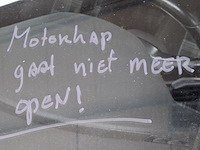 Motorhap
gaat niet MEER
open!